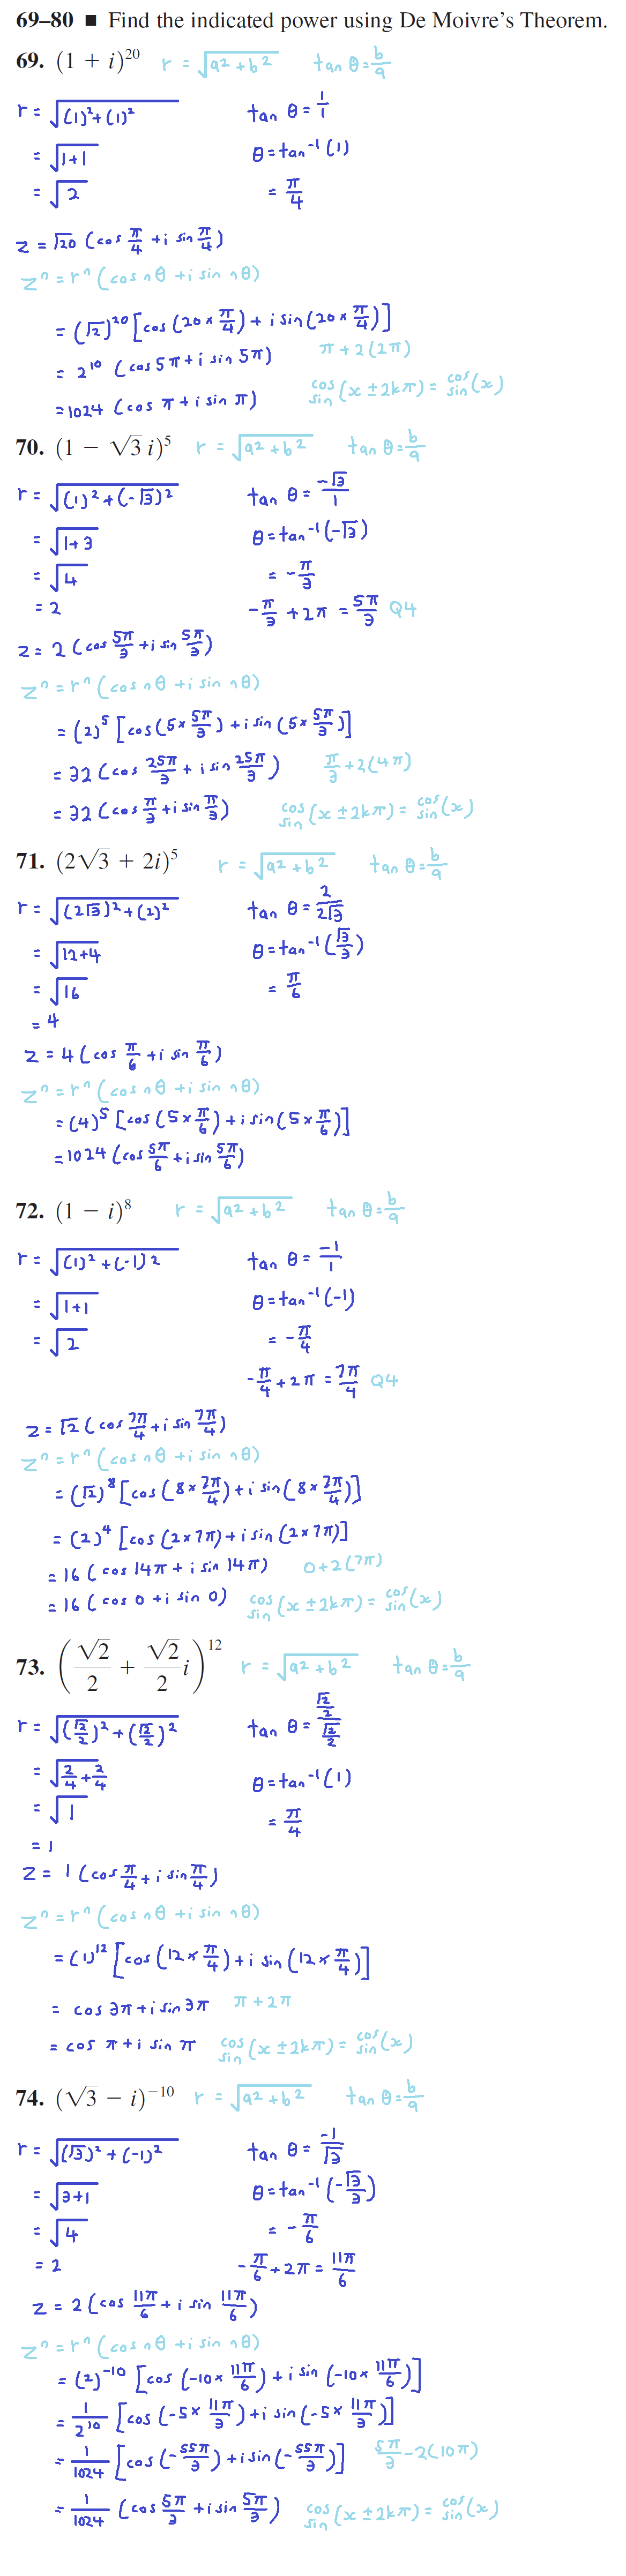 69–80 ■ Find the indicated power using De Moivre's Theorem.
69. (1 + i)²⁰ r = √(a² + b²) tan θ = b/a
r = √((1)² + (1)²) tan θ = 1/1
= √(1+1) θ = tan⁻¹(1)
= √2 = π/4
z = √20 (cos π/4 + i sin π/4)
zⁿ = rⁿ (cos nθ + i sin nθ)
= (√2)²⁰ [cos (20 × π/4) + i sin (20 × π/4)]
= 2¹⁰ (cos 5π + i sin 5π) π + 2(2π)
= 1024 (cos π + i sin π) cos/sin (x ± 2kπ) = cos/sin (x)
70. (1 − √3 i)⁵ r = √(a² + b²) tan θ = b/a
r = √((1)² + (-√3)²) tan θ = -√3/1
= √(1+3) θ = tan⁻¹(-√3)
= √4 = -π/3
= 2 -π/3 + 2π = 5π/3 Q4
z = 2 (cos 5π/3 + i sin 5π/3)
zⁿ = rⁿ (cos nθ + i sin nθ)
= (2)⁵ [cos (5 × 5π/3) + i sin (5 × 5π/3)]
= 32 (cos 25π/3 + i sin 25π/3) π/3 + 2(4π)
= 32 (cos π/3 + i sin π/3) cos/sin (x ± 2kπ) = cos/sin (x)
71. (2√3 + 2i)⁵ r = √(a² + b²) tan θ = b/a
r = √((2√3)² + (2)²) tan θ = 2/2√3
= √(12+4) θ = tan⁻¹(√3/3)
= √16 = π/6
= 4
z = 4 (cos π/6 + i sin π/6)
zⁿ = rⁿ (cos nθ + i sin nθ)
= (4)⁵ [cos (5 × π/6) + i sin (5 × π/6)]
= 1024 (cos 5π/6 + i sin 5π/6)
72. (1 − i)⁸ r = √(a² + b²) tan θ = b/a
r = √((1)² + (-1)2) tan θ = -1/1
= √(1+1) θ = tan⁻¹(-1)
= √2 = -π/4
-π/4 + 2π = 7π/4 Q4
z = √2 (cos 7π/4 + i sin 7π/4)
zⁿ = rⁿ (cos nθ + i sin nθ)
= (√2)⁸ [cos (8 × 7π/4) + i sin (8 × 7π/4)]
= (2)⁴ [cos (2 × 7π) + i sin (2 × 7π)]
= 16 (cos 14π + i sin 14π) 0 + 2(7π)
= 16 (cos 0 + i sin 0) cos/sin (x ± 2kπ) = cos/sin (x)
73. (√2/2 + √2/2 i)¹² r = √(a² + b²) tan θ = b/a
r = √((√2/2)² + (√2/2)²) tan θ = (√2/2)/(√2/2)
= √(2/4 + 2/4) θ = tan⁻¹(1)
= √1 = π/4
= 1
z = 1 (cos π/4 + i sin π/4)
zⁿ = rⁿ (cos nθ + i sin nθ)
= (1)¹² [cos (12 × π/4) + i sin (12 × π/4)]
= cos 3π + i sin 3π π + 2π
= cos π + i sin π cos/sin (x ± 2kπ) = cos/sin (x)
74. (√3 − i)⁻¹⁰ r = √(a² + b²) tan θ = b/a
r = √((√3)² + (-1)²) tan θ = -1/√3
= √(3+1) θ = tan⁻¹(-√3/3)
= √4 = -π/6
= 2 -π/6 + 2π = 11π/6
z = 2 (cos 11π/6 + i sin 11π/6)
zⁿ = rⁿ (cos nθ + i sin nθ)
= (2)⁻¹⁰ [cos (-10 × 11π/6) + i sin (-10 × 11π/6)]
= 1/2¹⁰ [cos (-5 × 11π/3) + i sin (-5 × 11π/3)]
= 1/1024 [cos (-55π/3) + i sin (-55π/3)] 5π/3 - 2(10π)
= 1/1024 (cos 5π/3 + i sin 5π/3) cos/sin (x ± 2kπ) = cos/sin (x)